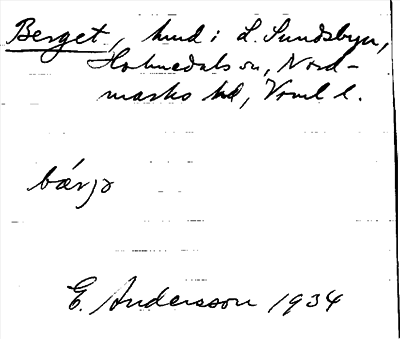 Berget, hmd i L. Sundsbyn,
Holmedals sn, Nord-
marks hd, Vrml l.
bærjə
E. Andersson 1934